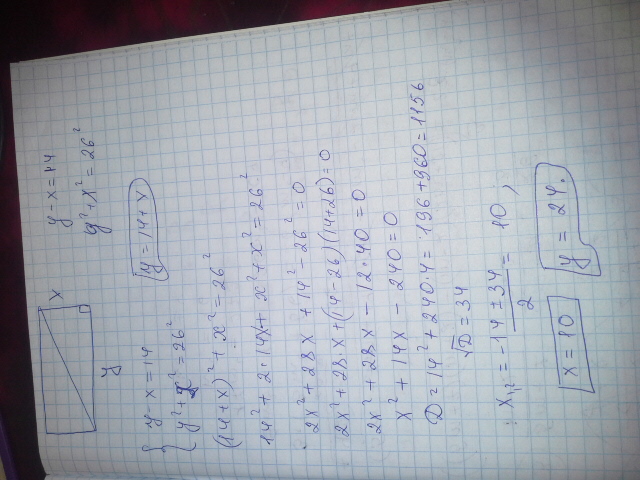 x
y
y - x = 14
y² + x² = 26²
{ y - x = 14
y² + x² = 26²
y = 14 + x
(14 + x)² + x² = 26²
14² + 2·14x + x² + x² = 26²
2x² + 28x + 14² - 26² = 0
2x² + 28x + (14 - 26)(14 + 26) = 0
2x² + 28x - 12·40 = 0
x² + 14x - 240 = 0
D = 14² + 240·4 = 196 + 960 = 1156
√D = 34
x₁,₂ = (-14 ± 34)/2 = 10,
x = 10
y = 24.